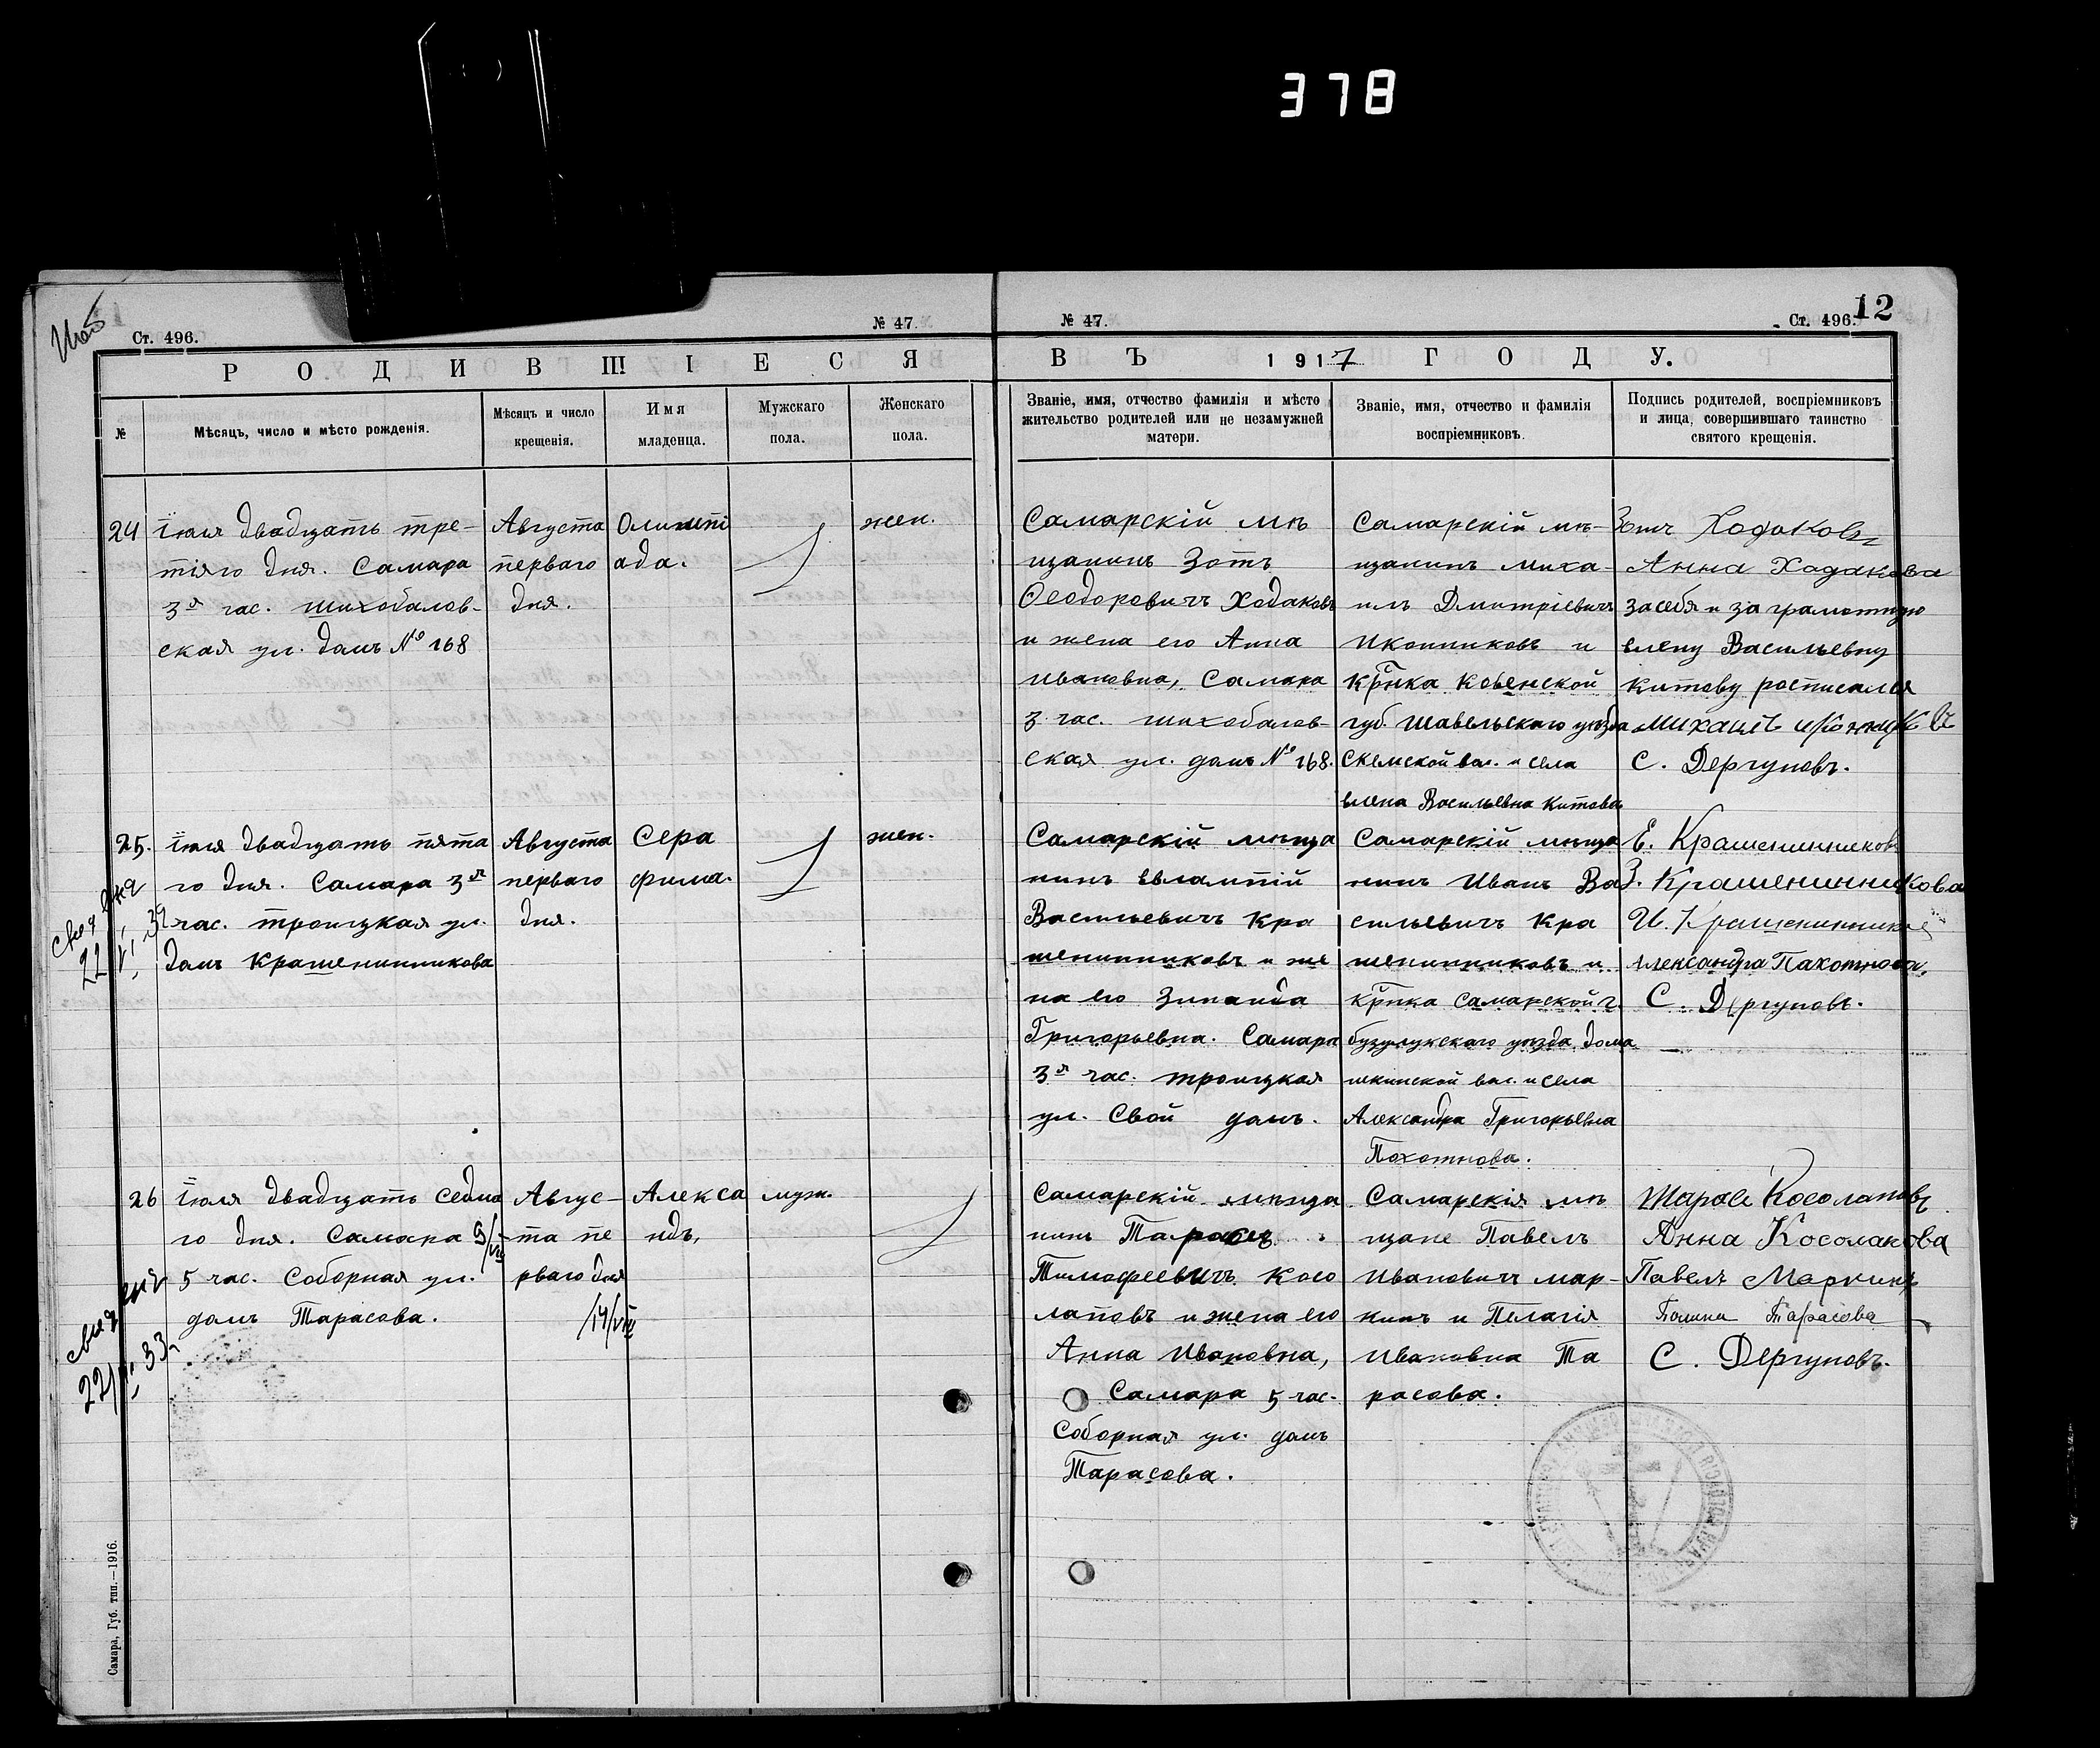 378
12
Ст. 496.
№ 47.
№ 47.
Ст. 496.
РОДИВШІЕСЯ
ВЪ 1917 ГОДУ.
№
Мѣсяцъ, число и мѣсто рожденія.
Мѣсяцъ и число
крещенія.
Имя
младенца.
Мужскаго
пола.
Женскаго
пола.
Званіе, имя, отчество фамилія и мѣсто
жительство родителей или не незамужней
матери.
Званіе, имя, отчество и фамилія
воспріемниковъ.
Подпись родителей, воспріемниковъ
и лица, совершившаго таинство
святого крещенія.
24
Іюля двадцать тре-
тіяго дня. Самара
3я час. шихобалов-
ская ул. домъ № 168
Августа
перваго
дня.
Олимпі
ада.
жен.
Самарскій мѣ
щанинъ Зотъ
Ѳеодоровичъ Ходаковъ
и жена его Анна
Ивановна, Самара
3 час. шихобалов-
ская ул. домъ № 168.
Самарскій мѣ-
щанинъ Миха-
илъ Дмитріевичъ
Иконниковъ и
Кр̄нка Ковенской
губ. Шавельскаго уѣзда
Скемской вол. и села
Елена Васильевна Китова
Зотъ Ходаковъ
Анна Ходакова
за себя и за грамотную
Елену Васильевну
Китову росписался
Михаилъ Иконниковъ
С. Дергуновъ.
25.
Іюля двадцать пята
го дня. Самара 3я
час. троицкая ул.
домъ Крашенинникова
Августа
перваго
дня.
Сера
фима.
жен.
Самарскій мѣща
нинъ Евлампій
Васильевичъ Кра
шенинниковъ и же
на его Зинаида
Григорьевна. Самара
3я час. троицкая
ул. Свой домъ.
Самарскій мѣща
нинъ Иванъ Ва
сильевичъ Кра
шенинниковъ и
Кр̄нка Самарской г.
бузулукскаго уѣзда, Дома
шкинской вол. и села
Александра Григорьевна
Похотнова.
Е. Крашенинниковъ
З. Крашенинникова
И. Крашенинниковъ
Александра Пахотнова.
С. Дергуновъ.
26
Іюля двадцать седмо
го дня. Самара 9/VIII
5 час. Соборная ул.
домъ Тарасова.
Авгус-
та пе
рваго дня
/14/VIII
Алекса
ндъ,
муж.
Самарскій мѣща
нинъ Тарасъ
Тимофеевичъ Косо
лаповъ и жена его
Анна Ивановна,
Самара 5 час.
Соборная ул. домъ
Тарасова.
Самарскія мѣ
щане Павелъ
Ивановичъ Мар-
кинъ и Пелагія
Ивановна Та
расова.
Тарасъ Косолаповъ
Анна Косолапова
Павелъ Маркинъ
Полина Тарасова
С. Дергуновъ.
Самара, Губ. тип.—1916.